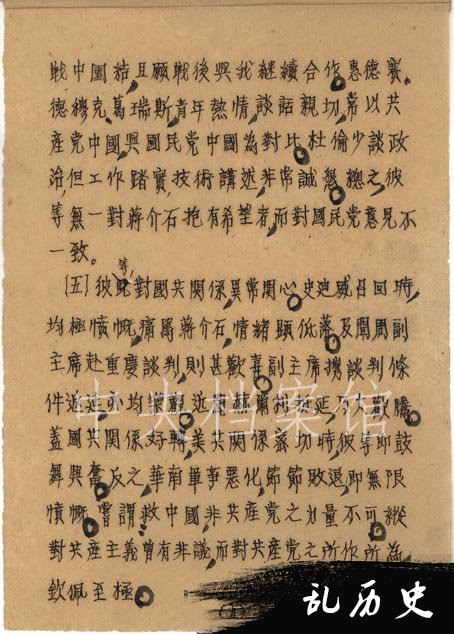 戰中團結,且願戰後與我繼續合作,惠德賽、
德穆克、葛瑞斯,青年熱情,談話親切,常以共
產党中國與國民党中國為對比。杜倫少談政
治,但工作踏實,技術講述,非常誠懇。總之,彼
等無一對蔣介石抱有希望者,而對國民党意見不
一致。
〔五〕彼等對國共關係異常關心。史迪威召回時,
均極憤慨,痛罵蔣介石,情緒顯低落。及聞周副
主席赴重慶談判,則甚歡喜。副主席携談判條
件
近
延安,乃大歡騰。
蓋國共關係好轉,美共關係密切時,彼等即鼓
舞興奮。反之,華南軍事惡化,節節敗退,即無限
憤慨。嘗謂:救中國非共產党之力量不可。縱
對共產主義曾有非議,而對共產党之所作所為,
欽佩至極。
中央档案馆
乱历史